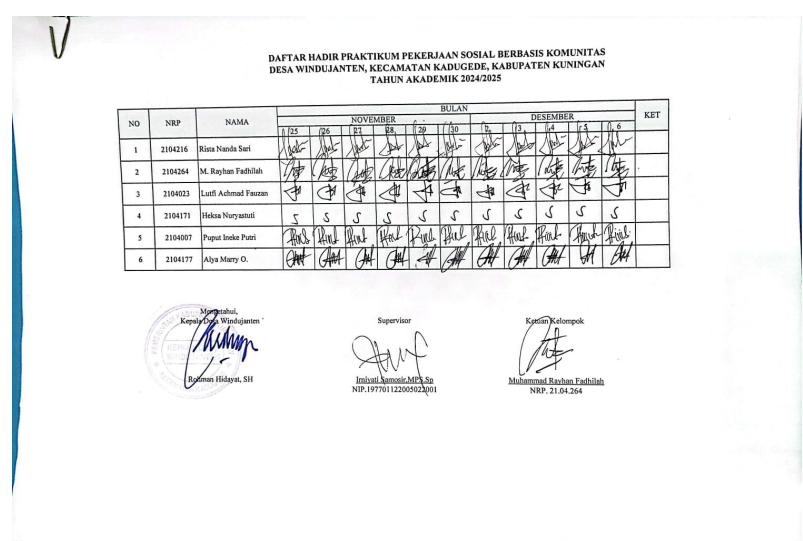 DAFTAR HADIR PRAKTIKUM PEKERJAAN SOSIAL BERBASIS KOMUNITAS
DESA WINDUJANTEN, KECAMATAN KADUGEDE, KABUPATEN KUNINGAN
TAHUN AKADEMIK 2024/2025
NO NRP NAMA BULAN KET
NOVEMBER DESEMBER
25 26 27 28 29 30 2 3 4 5 6
1 2104216 Rista Nanda Sari
2 2104264 M. Rayhan Fadhilah
3 2104023 Lutfi Achmad Fauzan
4 2104171 Heksa Nuryastuti S S S S S S S S S S S
5 2104007 Puput Ineke Putri
6 2104177 Alya Marry O.
Mengetahui,
Kepala Desa Windujanten
Supervisor
Ketuan Kelompok
Rohman Hidayat, SH
Irniyati Samosir,MPS.Sp
NIP.197701122005022001
Muhammad Rayhan Fadhilah
NRP. 21.04.264